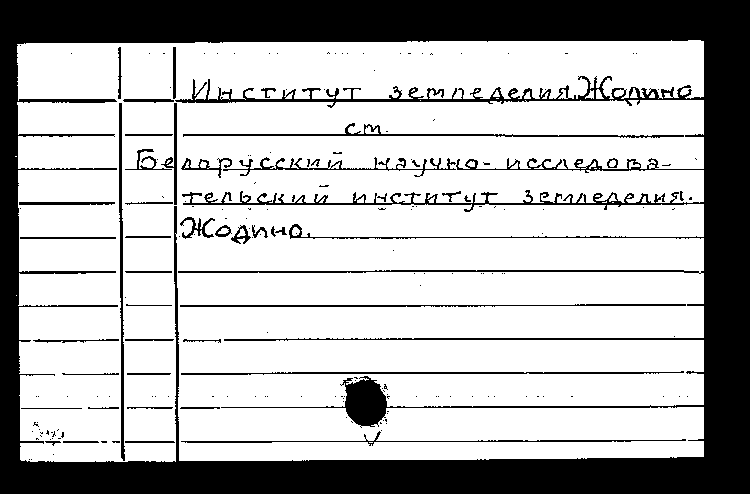 Институт земледелия. Жодино
ст.
Белорусский научно-исследова-
тельский институт земледелия.
Жодино.